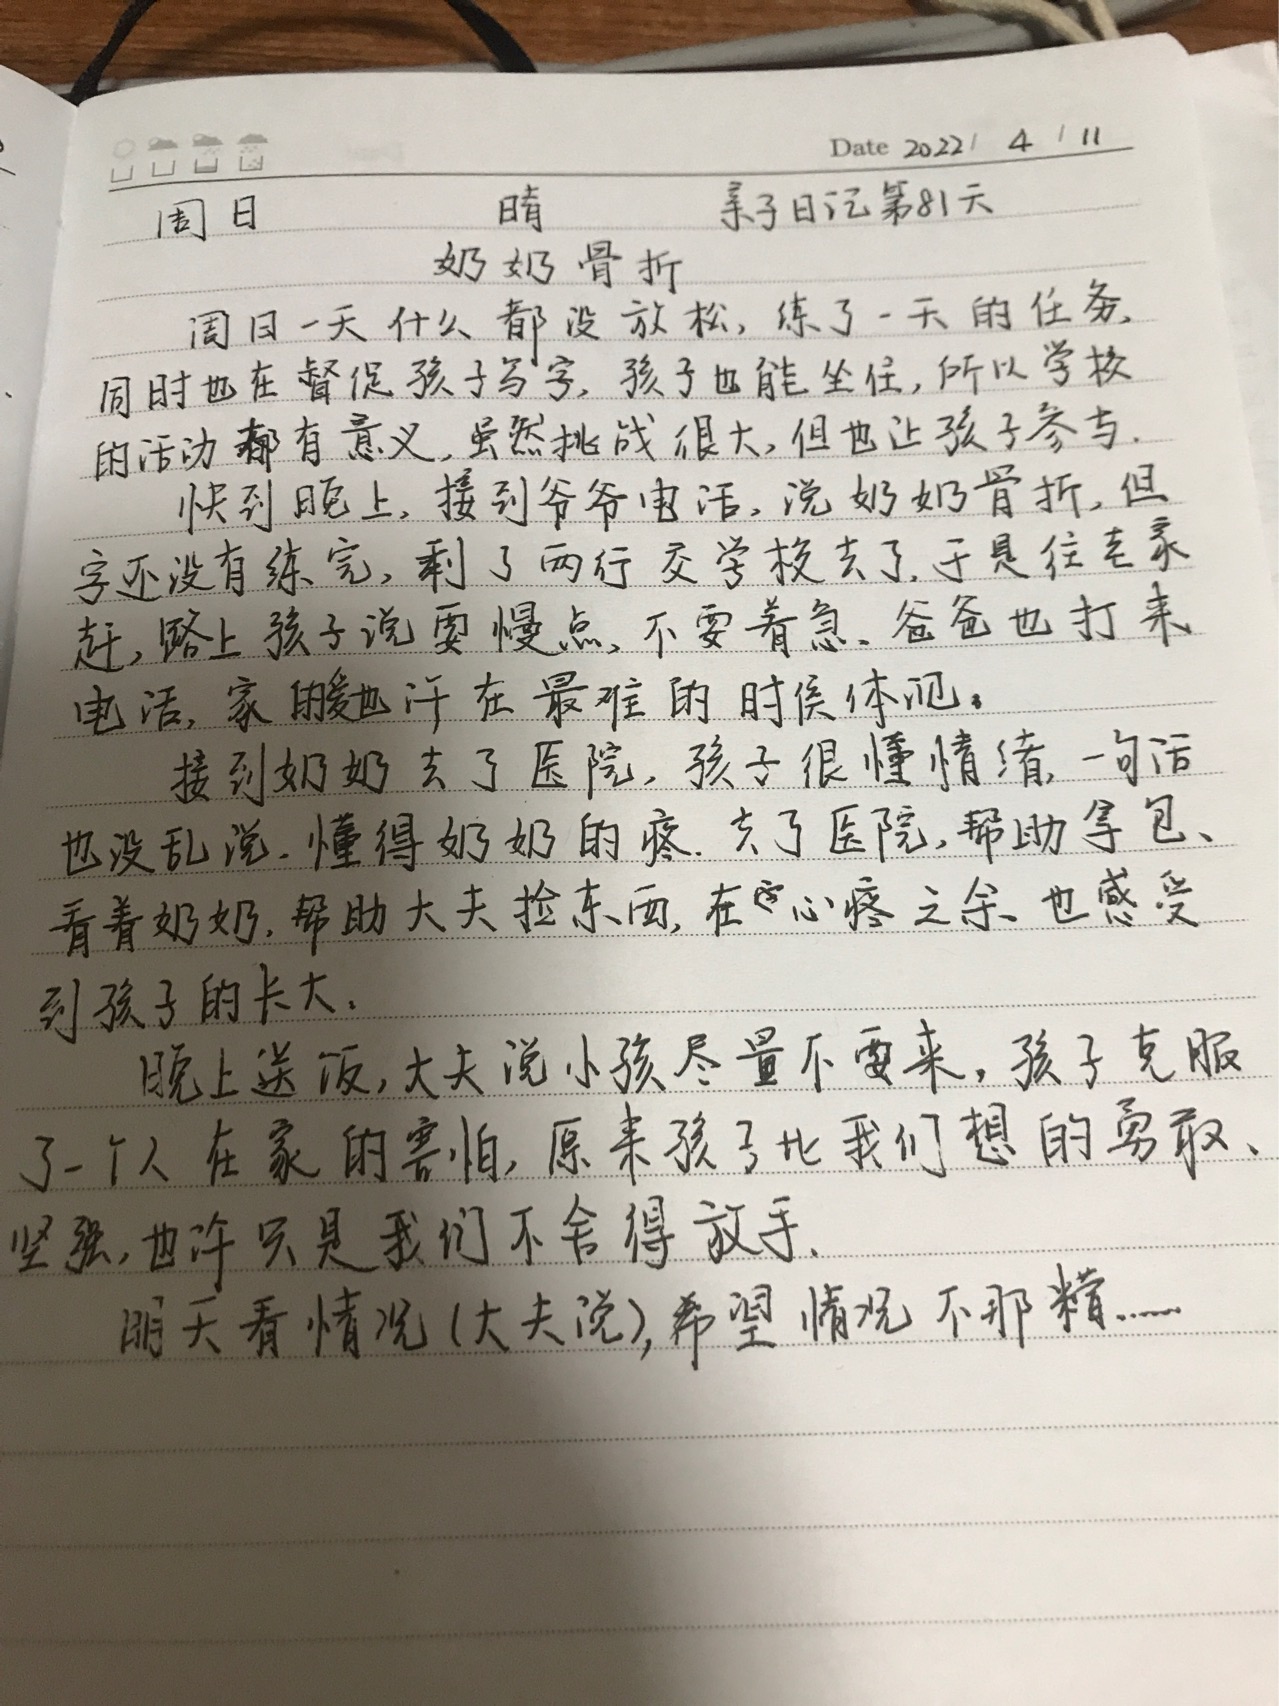 Date 2022/ 4 / 11
周日 晴 亲子日记第81天
奶奶骨折
周日一天什么都没放松,练了一天的任务,
同时也在督促孩子写字,孩子也能坐住,所以学校
的活动都有意义,虽然挑战很大,但也让孩子参与.
快到晚上,接到爷爷电话,说奶奶骨折,但
字还没有练完,剩了两行交学校去了,于是往老家
赶,路上孩子说要慢点,不要着急、爸爸也打来
电话,家的爱也许在最难的时候体现。
接到奶奶去了医院,孩子很懂情绪,一句话
也没乱说、懂得奶奶的疼.去了医院,帮助拿包、
看着奶奶,帮助大夫捡东西,在心疼之余、也感受
到孩子的长大.
晚上送饭,大夫说小孩尽量不要来,孩子克服
了一个人在家的害怕,原来孩子比我们想的勇敢、
坚强,也许只是我们不舍得放手.
明天看情况(大夫说),希望情况不那糟......